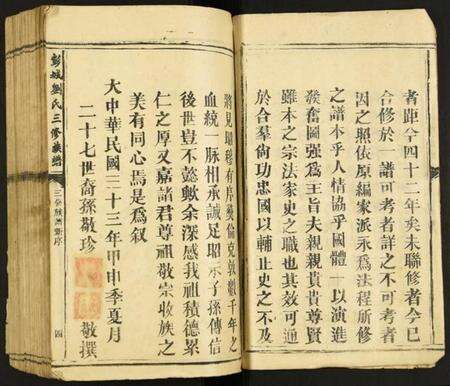 者距今四十二年矣未聯修者今已
合修於一譜可考者詳之不可考者
因之照依原編家派永爲法程所修
之譜本乎人情協乎國體一以演進
發奮圖強爲主旨夫親親貴貴尊賢
雖本之宗法家史之職也其效可通
於合羣尚功忠國以輔正史之不及
將見昭穆有序彝倫克敦數千年之
血統一脈相承誠足昭示子孫傳信
後世豈不懿歟余深感我祖積德累
仁之厚又嘉諸君尊祖敬宗收族之
美有同心焉是爲叙
大中華民國三十三年甲申季夏月
二十七世裔孫敬珍
敬撰
彭城劉氏三修族譜
四